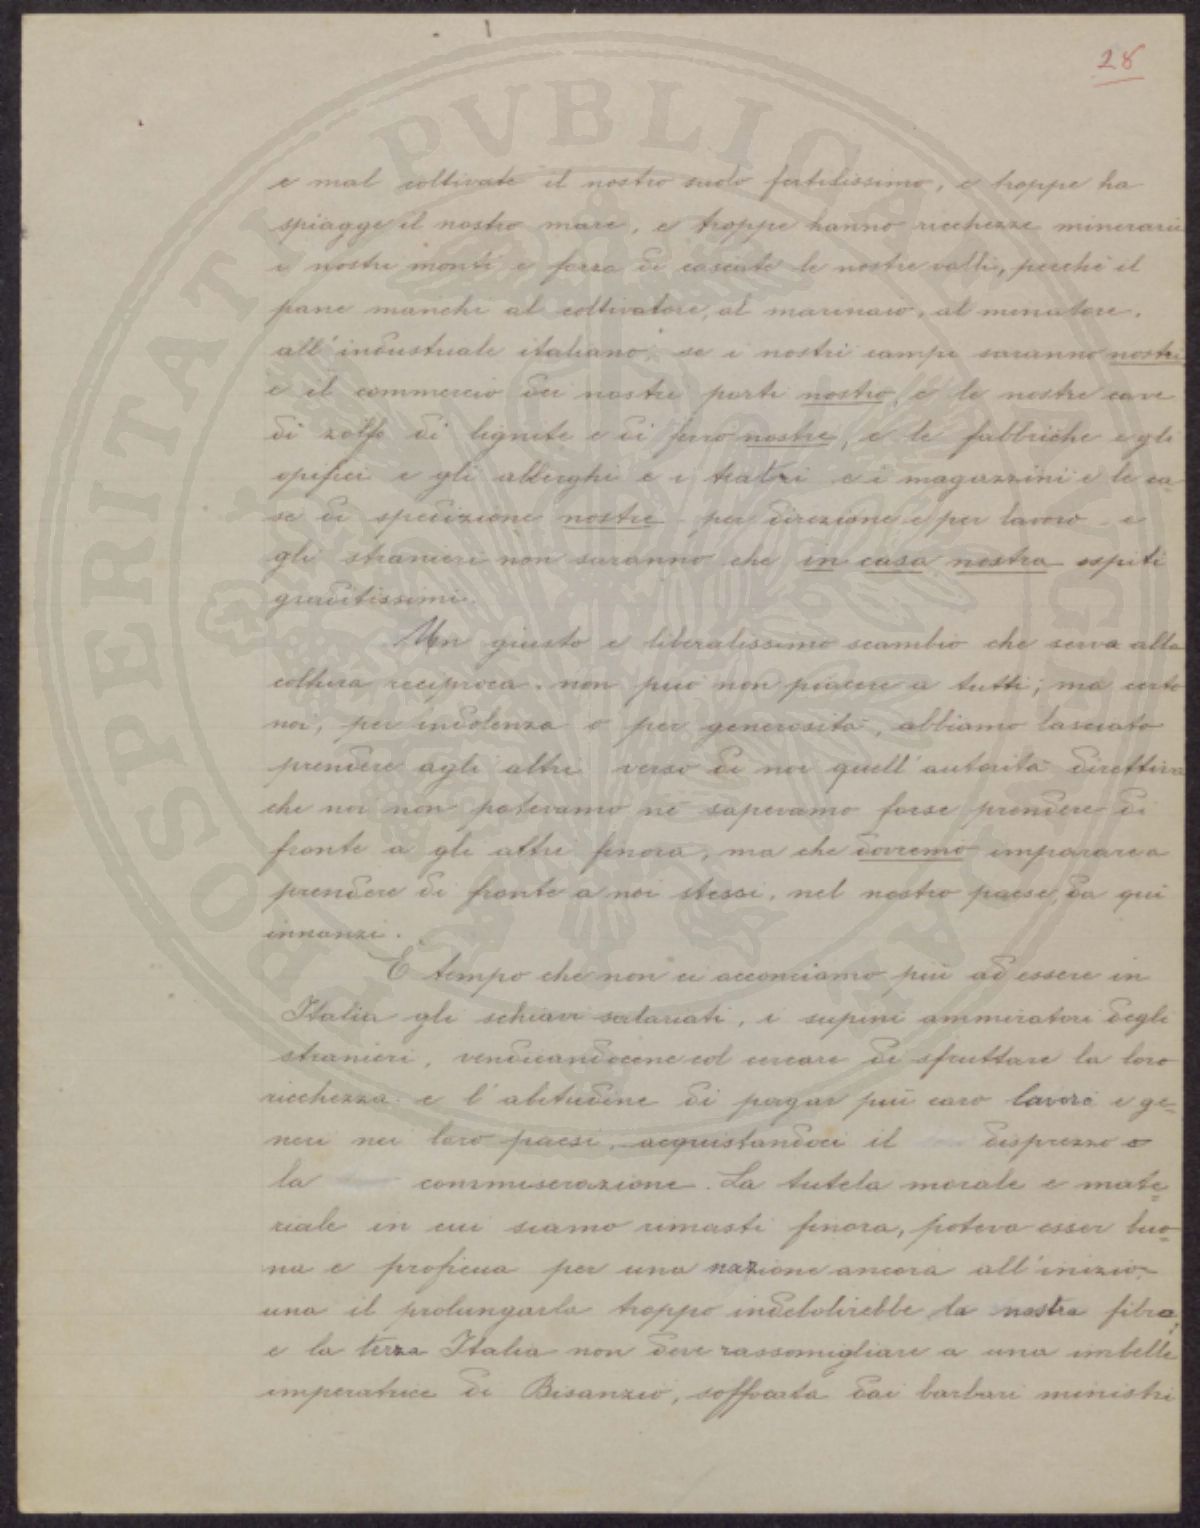 28
e mal coltivate il nostro suolo fertilissimo, e troppe ha
spiagge il nostro mare, e troppe hanno ricchezze minerarie
i nostri monti e forza di cascate le nostre valli, perchè il
pane manchi al coltivatore, al marinaio, al minatore,
all'industriale italiano, se i nostri campi saranno nostri
e il commercio dei nostri porti nostro, e le nostre cave
di zolfo di lignite e di ferro nostre, e le fabbriche e gli
opifici e gli alberghi e i teatri e i magazzini e le ca-
se di spedizione nostre per direzione e per lavoro e
gli stranieri non saranno che in casa nostra ospiti
graditissimi.
Un giusto e liberalissimo scambio che serva alla
coltura reciproca, non può non piacere a tutti; ma certo
noi, per indolenza o per generosità, abbiamo lasciato
prendere agli altri verso di noi quell'autorità direttiva
che noi non potevamo nè sapevamo forse prendere di
fronte a gli altri finora, ma che dovremo imparare a
prendere di fronte a noi stessi, nel nostro paese, da qui
innanzi.
È tempo che non ci acconciamo più ad essere in
Italia gli schiavi salariati, i supini ammiratori degli
stranieri, vendicandocene col cercare di sfruttare la loro
ricchezza e l'abitudine di pagar più caro lavori e ge-
neri nei loro paesi, acquistandoci il disprezzo o
la commiserazione. La tutela morale e mate-
riale in cui siamo rimasti finora, poteva esser buo-
na e proficua per una nazione ancora all'inizio,
una il prolungarla troppo indebolirebbe la nostra fibra;
e la terza Italia non deve rassomigliare a una imbelle
imperatrice di Bisanzio, soffocata dai barbari ministri
PROSPERITATI PVBLICAE AVGENDAE